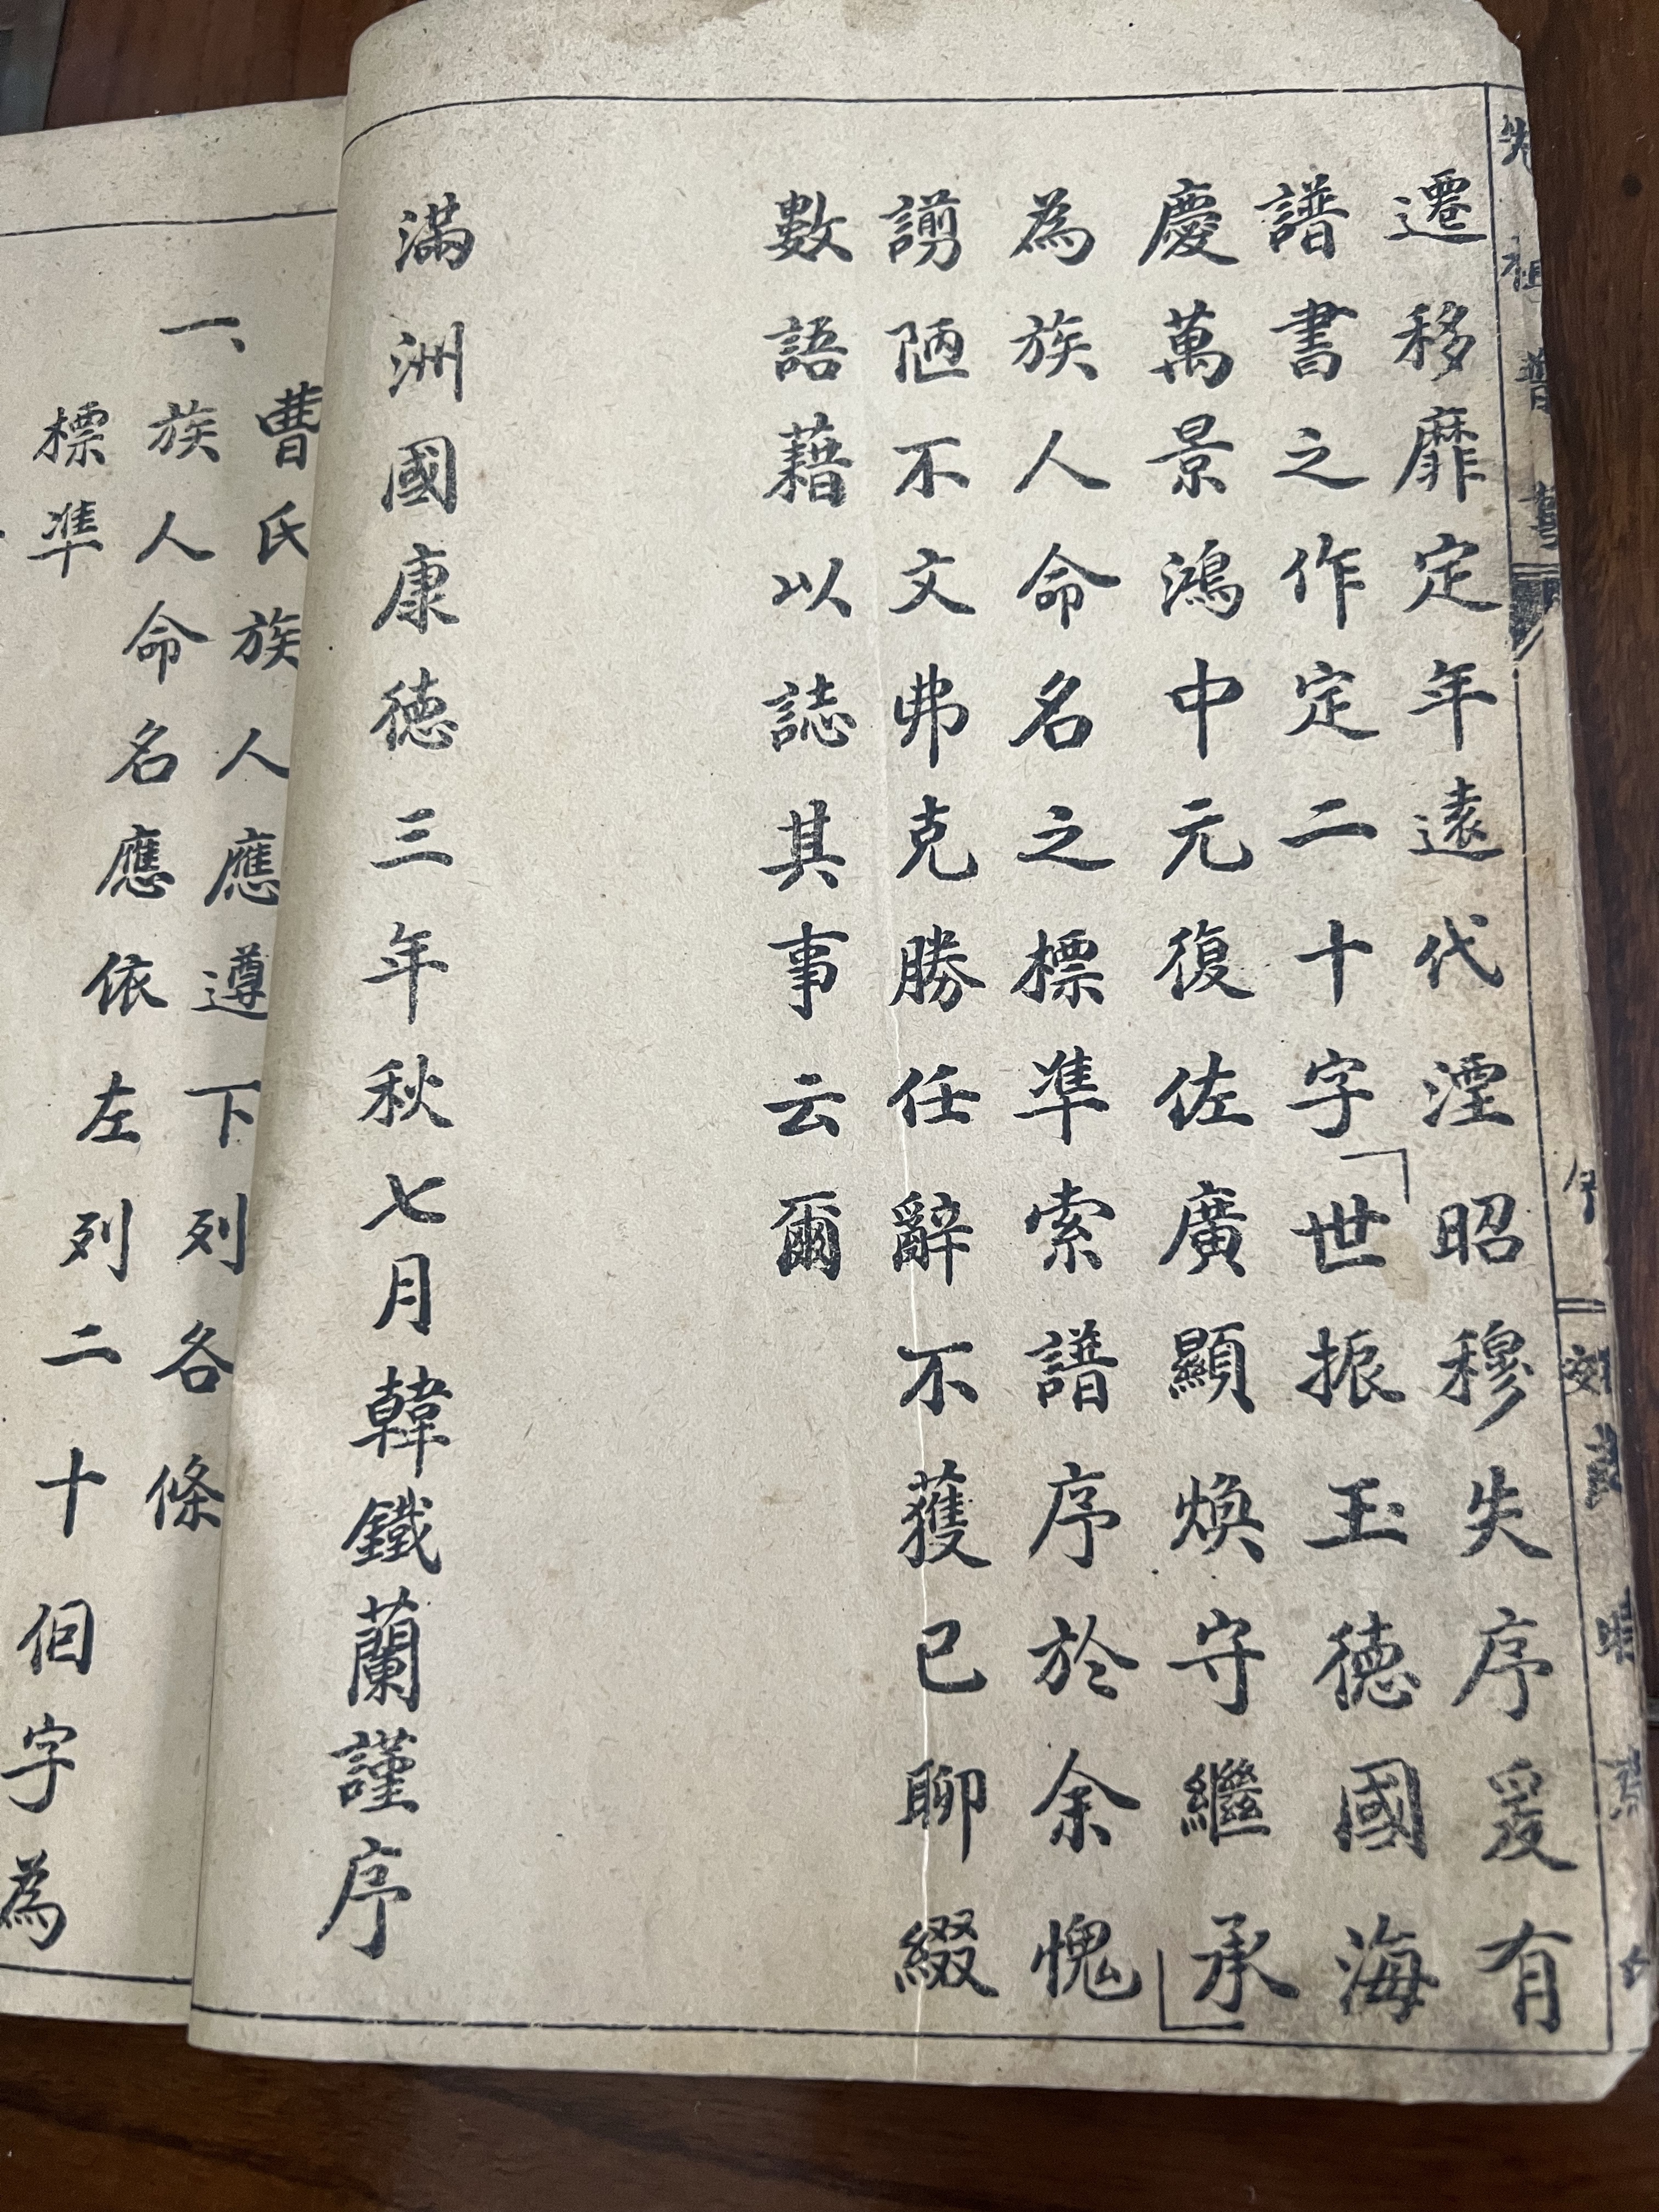 遷移靡定年遠代湮昭穆失序爰有
譜書之作定二十字「世振玉德國海
慶萬景鴻中元復佐廣顯煥守繼承」
為族人命名之標準索譜序於余愧
謭陋不文弗克勝任辭不獲已聊綴
數語藉以誌其事云爾
滿洲國康德三年秋七月韓鐵蘭謹序
曹氏族人應遵下列各條
一、族人命名應依左列二十個字為
標準